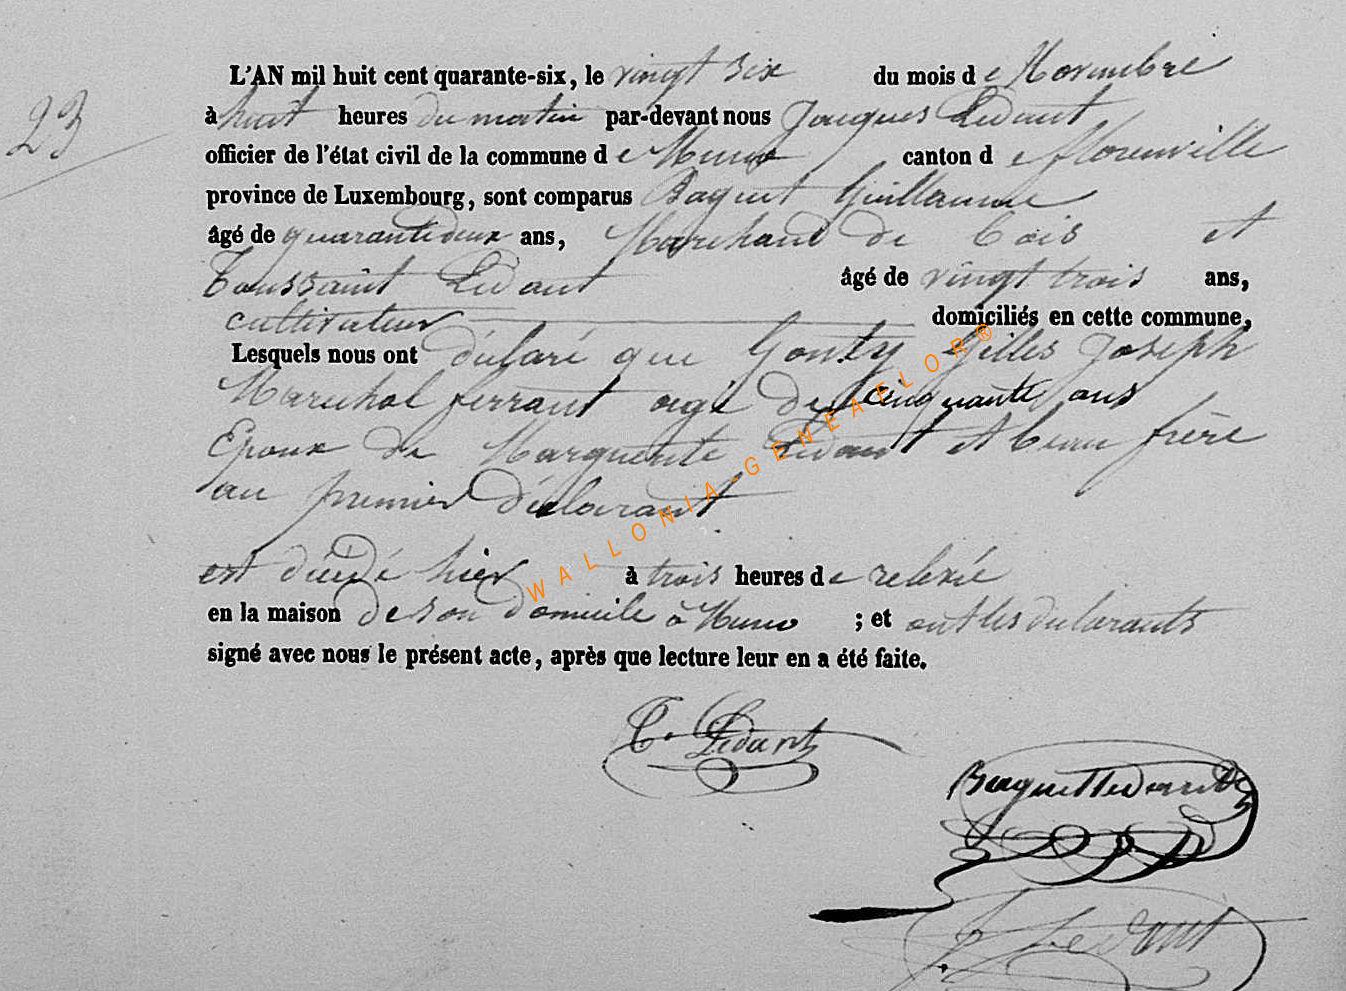 23
L'AN mil huit cent quarante-six, le vingt six du mois de Novembre
à huit heures du matin par-devant nous Jacques Lédant
officier de l'état civil de la commune de Muno canton de florenville
province de Luxembourg, sont comparus Baquet Guillaume
âgé de quarante deux ans, Marchand de bois et
Toussaint Lédant âgé de vingt trois ans,
cultivateur domiciliés en cette commune,
Lesquels nous ont déclaré que Gonty Gilles Joseph
Marechal ferrant agé de cinquante ans
Epoux de Marguerite Lédant et beau frère
au premier déclarant
est décédé hier à trois heures de relevée
en la maison de son domicile à Muno ; et ont les declarants
signé avec nous le présent acte, après que lecture leur en a été faite.
T. Ledant
Baguet Ledant
J. Ledant
WALLONIA-GENEAFLOR®